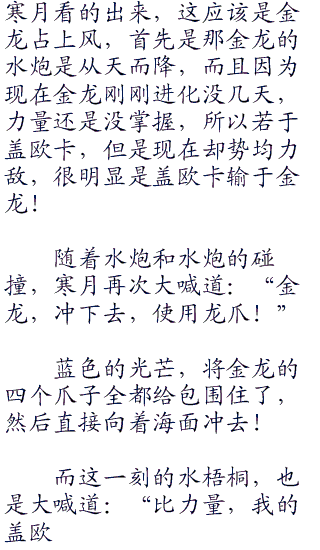 寒月看的出来，这应该是金
龙占上风，首先是那金龙的
水炮是从天而降，而且因为
现在金龙刚刚进化没几天，
力量还是没掌握，所以若于
盖欧卡，但是现在却势均力
敌，很明显是盖欧卡输于金
龙！
随着水炮和水炮的碰
撞，寒月再次大喊道：“金
龙，冲下去，使用龙爪！”
蓝色的光芒，将金龙的
四个爪子全都给包围住了，
然后直接向着海面冲去！
而这一刻的水梧桐，也
是大喊道：“比力量，我的
盖欧